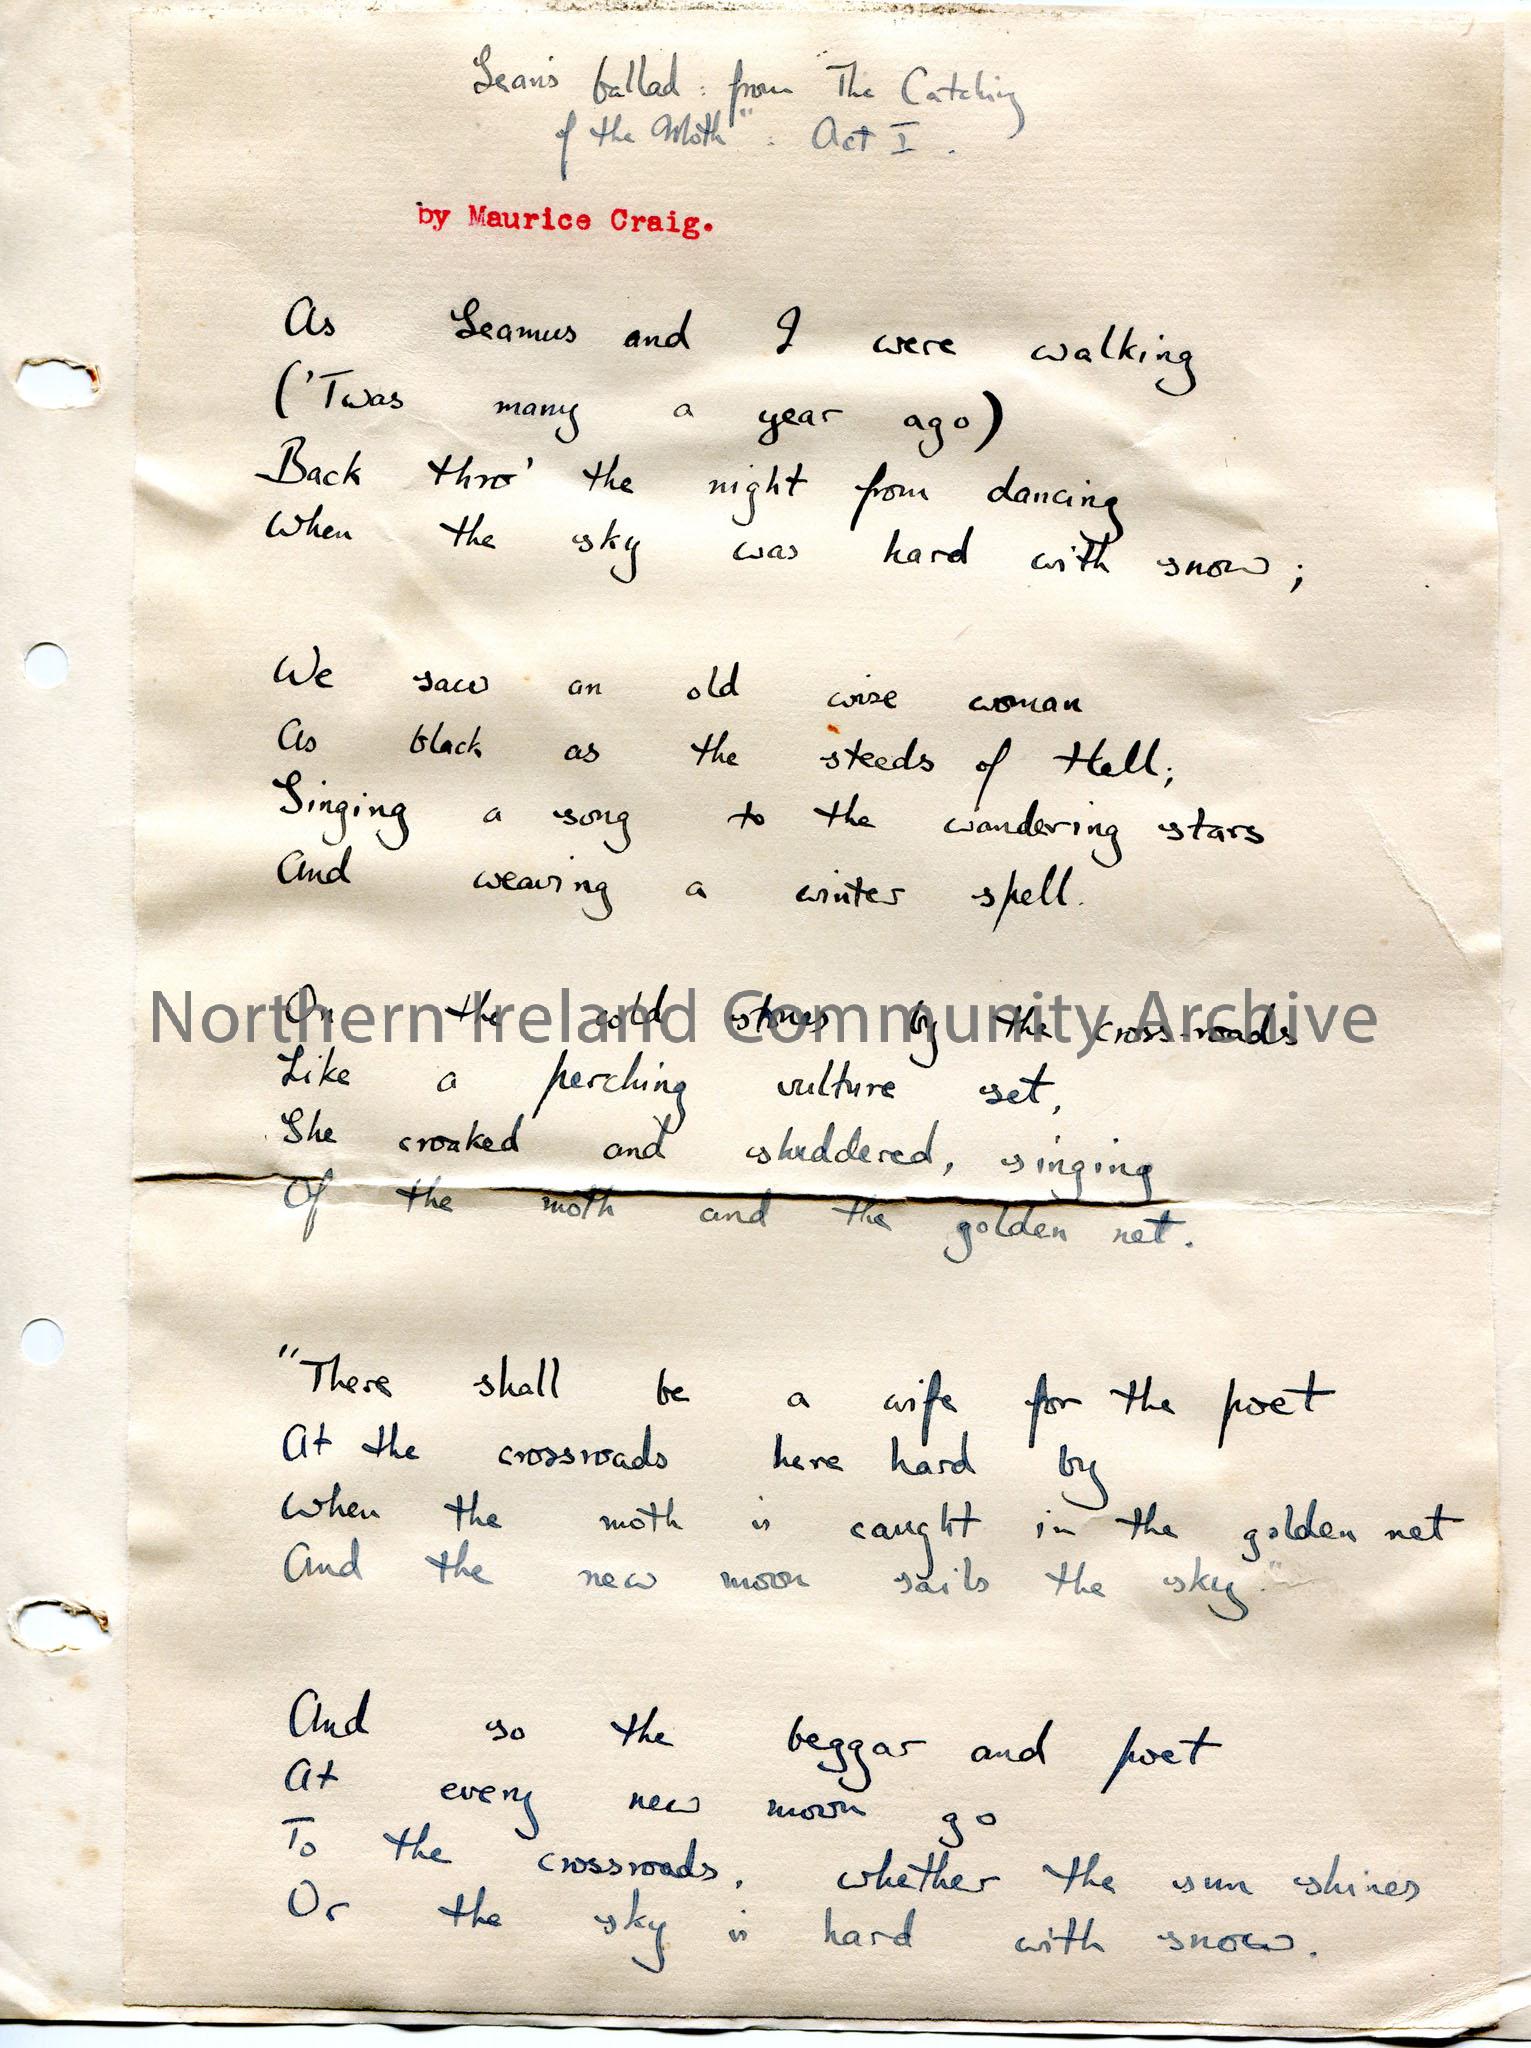 Sean's ballad: from "The Catching
of the Moth": Act I.
by Maurice Craig.
As Seamus and I were walking
('Twas many a year ago)
Back thro' the night from dancing
When the sky was hard with snow;
We saw an old wise woman
As black as the steeds of Hell;
Singing a song to the wandering stars
And weaving a winter spell.
On the cold stones by the cross-roads
Northern Ireland Community Archive
Like a perching vulture set,
She croaked and shuddered, singing
Of the moth and the golden net.
"There shall be a wife for the poet
At the crossroads here hard by
When the moth is caught in the golden net
And the new moon sails the sky."
And so the beggar and poet
At every new moon go
To the crossroads, whether the sun shines
Or the sky is hard with snow.